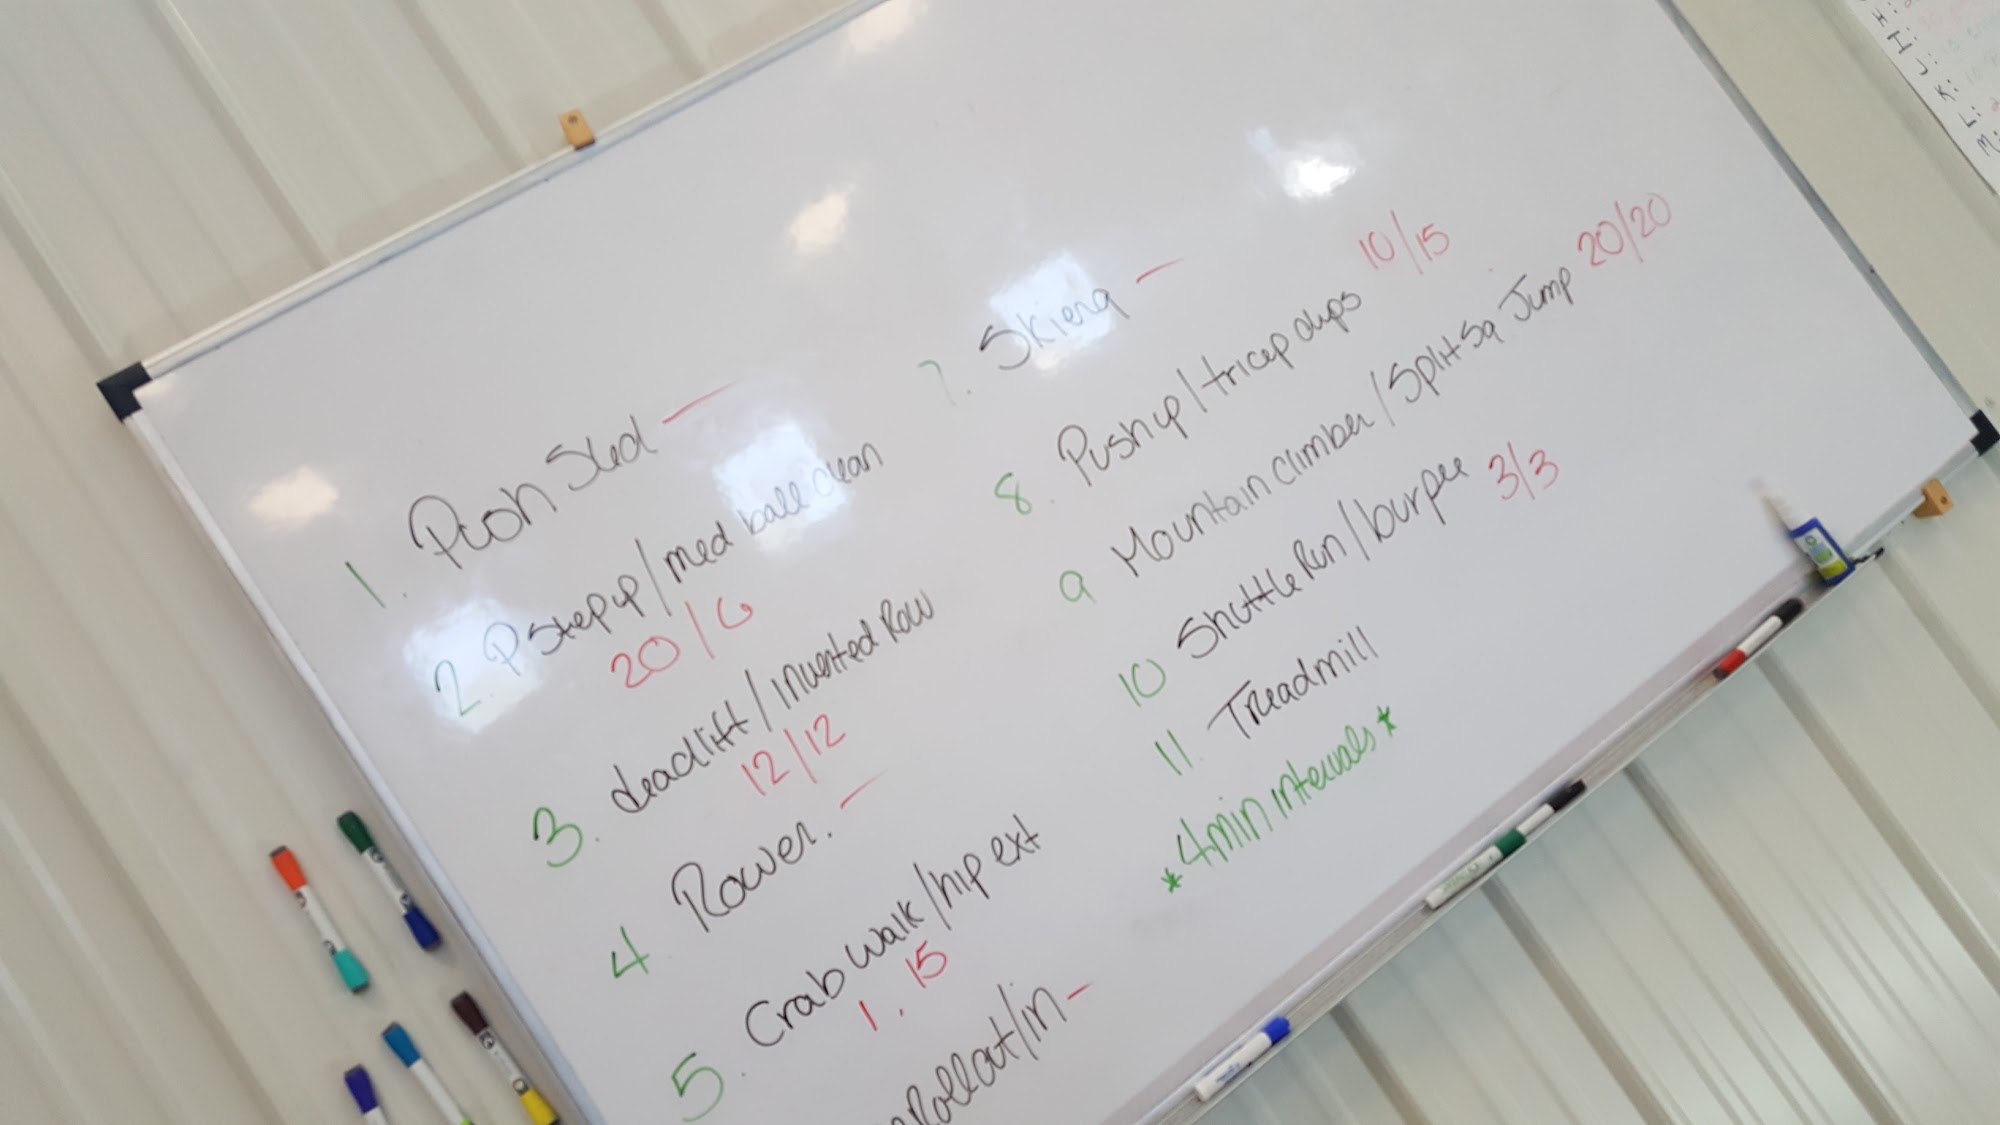 1. Push Sled —
2. P step up/med ball clean
20/6
3. deadlift/inverted Row
12/12
4 Rower. —
5. Crab walk/hip ext
1. 15
Rollout/in —
7. Skierg —
8. Push up/tricep dips 10/15
9 Mountain Climber/Split Sq Jump 20/20
10 Shuttle Run/burpee 3/3
11. Treadmill
*4min intervals*
K:
L:
M: